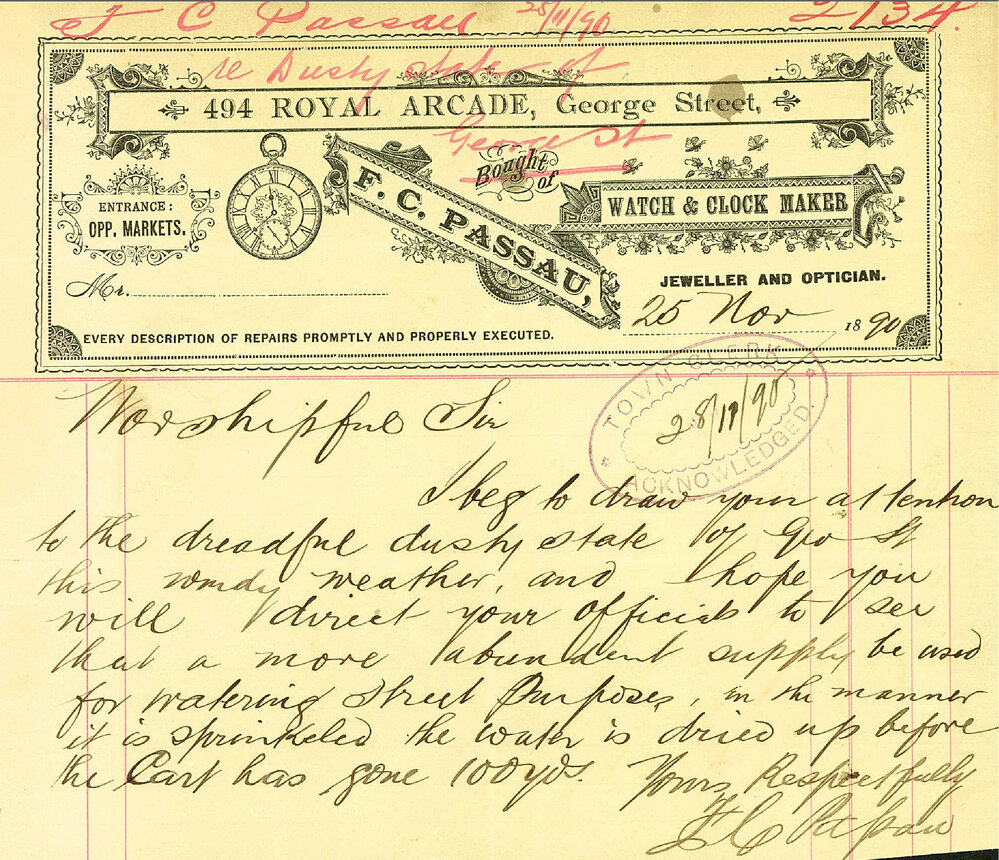 F C Passau 28/11/90 2134.
re Dusty state of
George St
494 ROYAL ARCADE, George Street,
ENTRANCE:
OPP. MARKETS.
Bought of
F. C. PASSAU,
WATCH & CLOCK MAKER
JEWELLER AND OPTICIAN.
Mr.
25 Nov 1890
EVERY DESCRIPTION OF REPAIRS PROMPTLY AND PROPERLY EXECUTED.
TOWN CLERK
28/11/90
ACKNOWLEDGED.
Worshipful Sir
I beg to draw your attention
to the dreadful dusty state of Geo St
this windy weather, and I hope you
will direct your officials to see
that a more abundent supply be used
for watering Street Purposes, in the manner
it is sprinkeled the water is dried up before
the Cart has gone 100 yds. Yours Respectfully
F C Passau